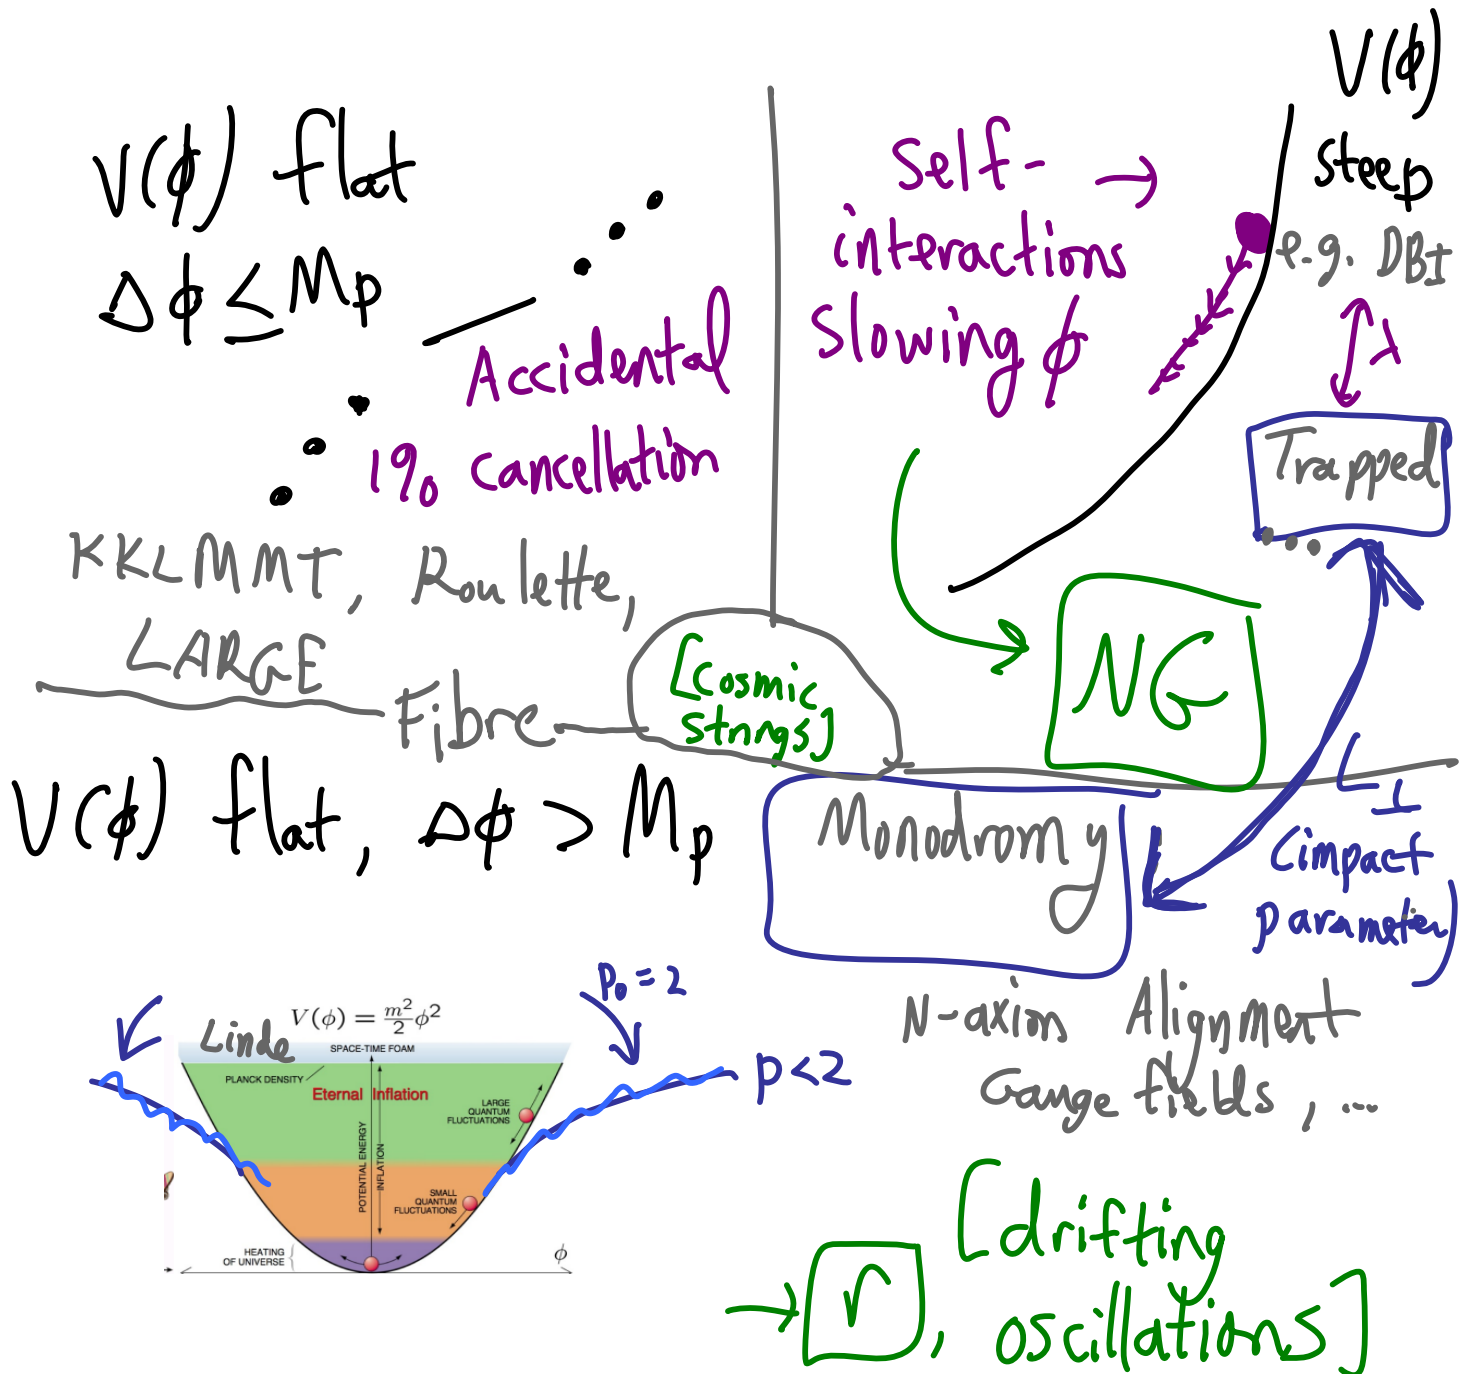 V(ϕ) flat
Δϕ ≤ Mp
Accidental
1% cancellation
KKLMMT, Roulette,
LARGE
Fibre
[Cosmic
strings]
V(ϕ)
steep
e.g. DBI
Self- →
interactions
slowing ϕ
λ
Trapped
...
NG
V(ϕ) flat, Δϕ > Mp
Monodromy
(impact
parameter)
N-axion Alignment
Gauge fields, ...
P₀ = 2
p<2
Linde
V(ϕ) = m²/2 ϕ²
SPACE-TIME FOAM
PLANCK DENSITY
Eternal Inflation
LARGE
QUANTUM
FLUCTUATIONS
POTENTIAL ENERGY
INFLATION
SMALL
QUANTUM
FLUCTUATIONS
HEATING
OF UNIVERSE
ϕ
→ r, [drifting
oscillations]